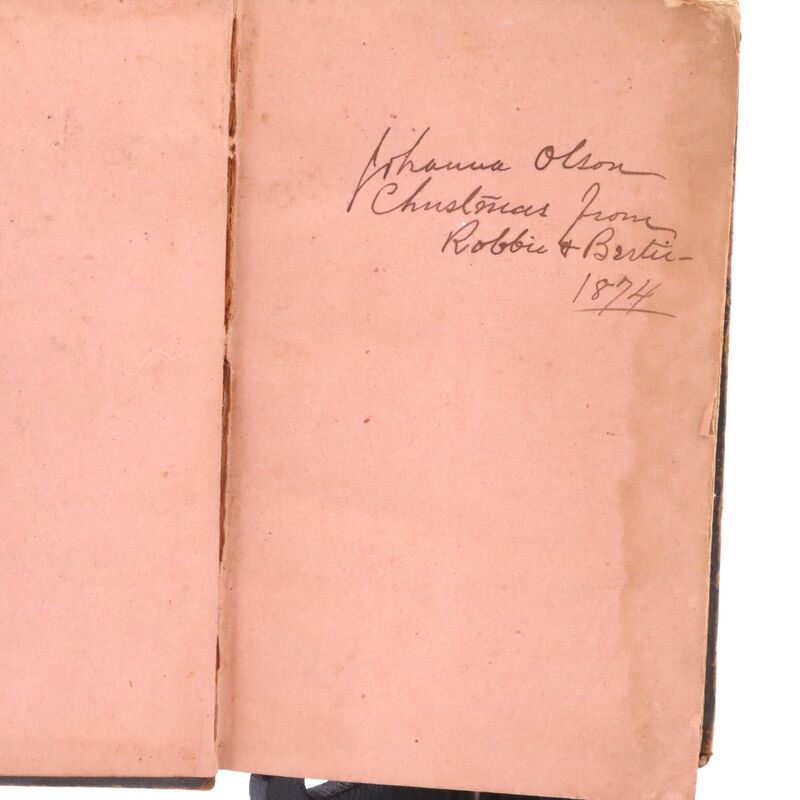 Johanna Olson
Christmas from
Robbie & Bertie-
1874